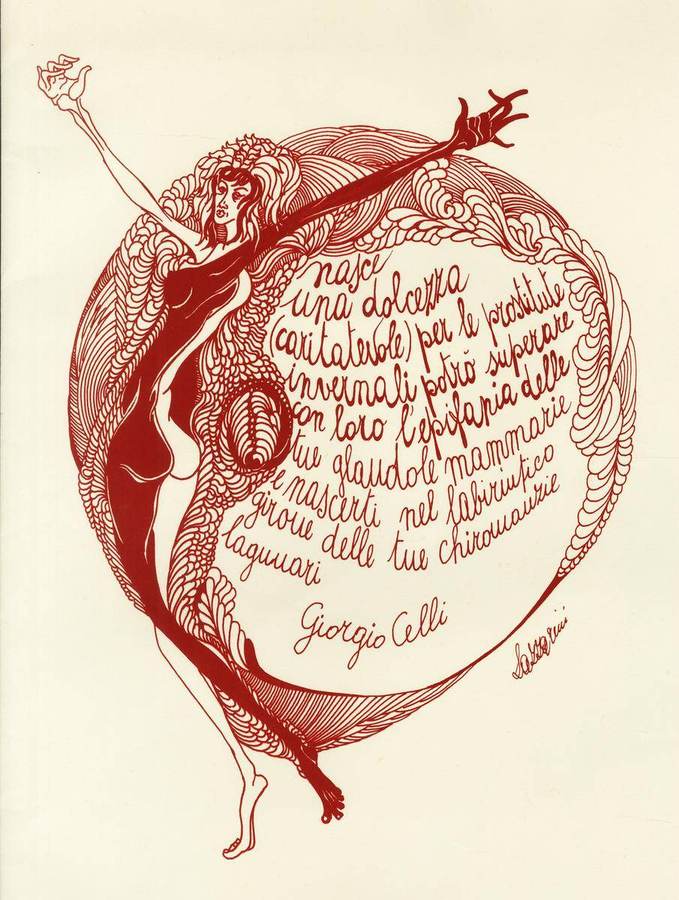 nasce
una dolcezza
(caritatevole) per le prostitute
invernali potrò superare
con loro l'epifania delle
tue glandole mammarie
e nascerti nel labirintico
girone delle tue chiromanzie
lagunari
Giorgio Celli
Lazzarini